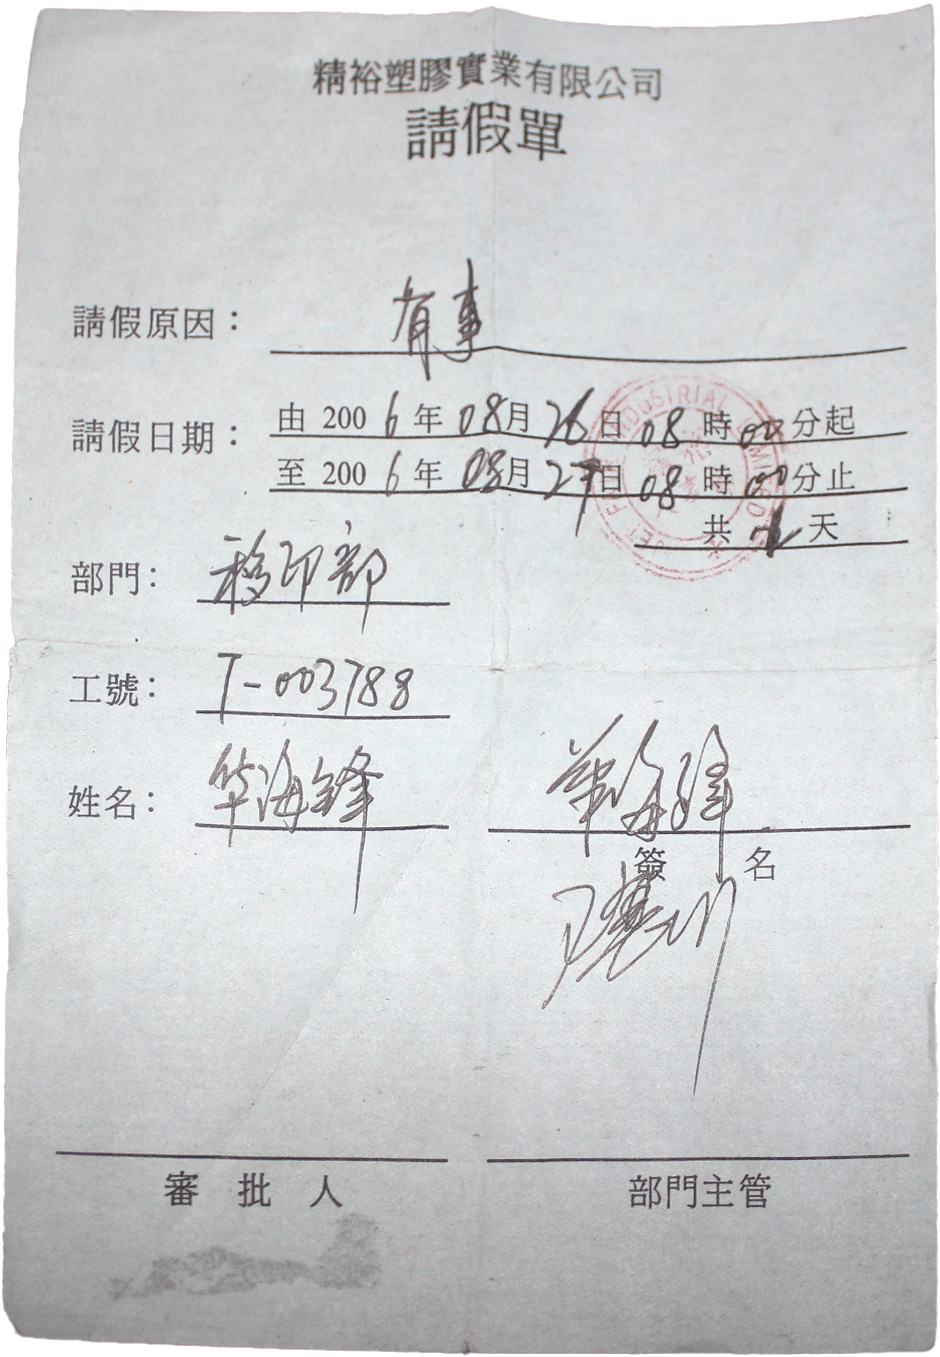 精裕塑膠實業有限公司
請假單
請假原因： 有事
請假日期： 由 2006年 08月 26日 08時 00分起
至 2006年 08月 27日 08時 00分止
共 天
部門： 移印部
工號： T-003788
姓名： 华海锋
华海锋
簽 名
審 批 人
部門主管
INDUSTRIAL